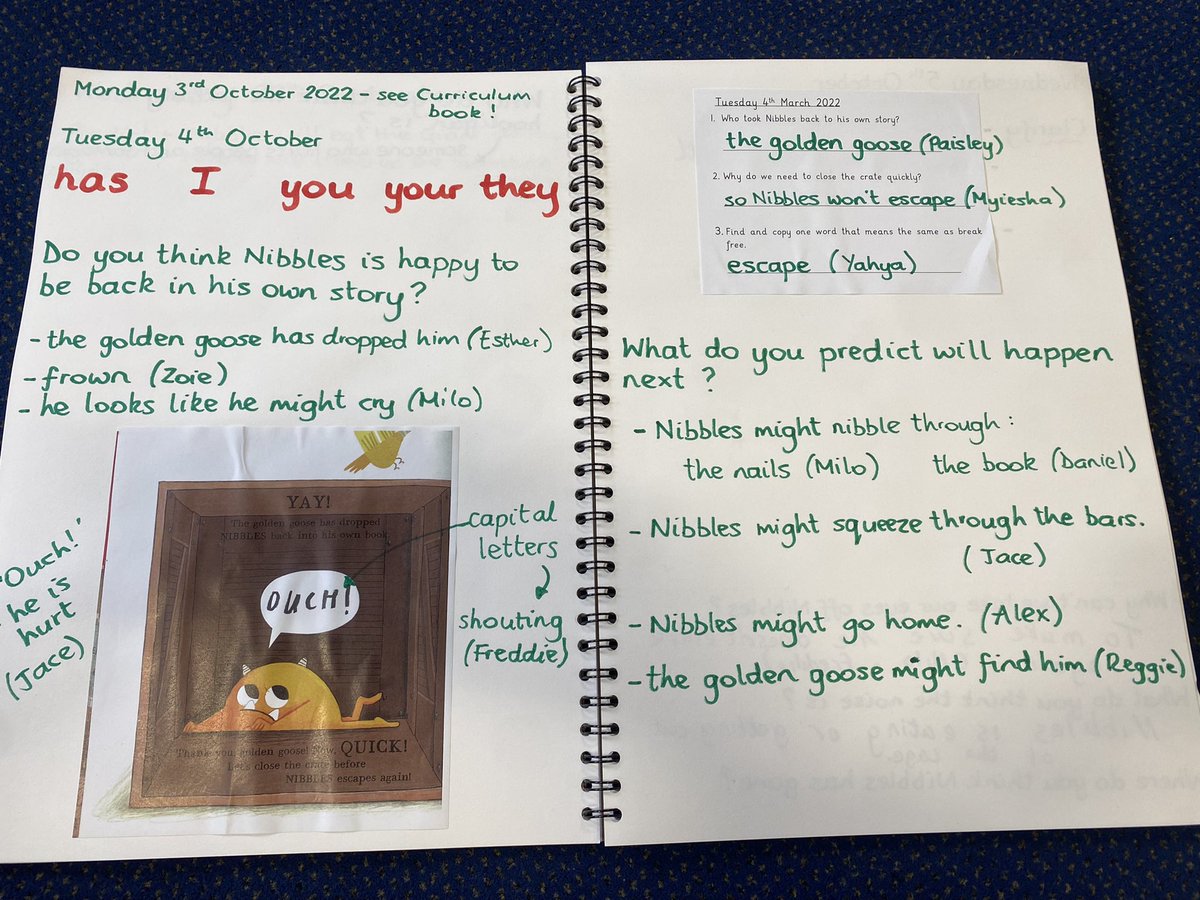 Monday 3rd October 2022 - see Curriculum
book!
Tuesday 4th October
has I you your they
Do you think Nibbles is happy to
be back in his own story?
- the golden goose has dropped him (Esther)
- frown (Zoie)
- he looks like he might cry (Milo)
'Ouch!'
he is
hurt
(Jace)
YAY!
The golden goose has dropped
NIBBLES back into his own book.
OUCH!
Thank you, golden goose! Now, QUICK!
Let's close the crate before
NIBBLES escapes again!
capital
letters
shouting
(Freddie)
Tuesday 4th March 2022
1. Who took Nibbles back to his own story?
the golden goose (Paisley)
2. Why do we need to close the crate quickly?
so Nibbles won't escape (Myiesha)
3. Find and copy one word that means the same as break
free.
escape (Yahya)
What do you predict will happen
next?
- Nibbles might nibble through:
the nails (Milo) the book (Daniel)
- Nibbles might squeeze through the bars.
(Jace)
- Nibbles might go home. (Alex)
- the golden goose might find him (Reggie)